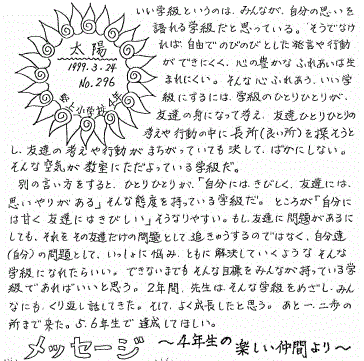 太陽
1999.3.24
No.296
小学校4年
いい学級というのは、みんなが、自分の思いを
語れる学級だと思っている。そうでなけ
れば、自由でのびのびとした発言や行動
ができにくく、心の豊かなふれあいは生
まれにくい。そんな心ふれあう、いい学
級にするには、学級のひとりひとりが、
友達の身になって考え、友達ひとりひとりの
考えや行動の中に長所(良い所)を探そうと
し、友達の考えや行動がまちがっていても決して、ばかにしない。
そんな空気が教室にただよっている学級だ。
別の言い方をすると、ひとりひとりが、「自分には、きびしく、友達には、
思いやりがある」そんな態度を持っている学級だ。ところが「自分に
は甘く友達にはきびしい」そうなりやすい。もし、友達に問題があるに
しても、それをその友達だけの問題として、追きゅうするのではなく、自分達
(自分)の問題として、いっしょに悩み、ともに解決していくようなそんな
学級になれたらいい。できないまでもそんな目標をみんなが持っている学
級であればいいと思う。2年間、先生はそんな学級をめざし、みん
なにも、くり返し話してきた。そして、よく成長したと思う。あと一、二歩の
所まで来た。5.6年生で達成してほしい。
メッセージ 〜4年生の楽しい仲間より〜